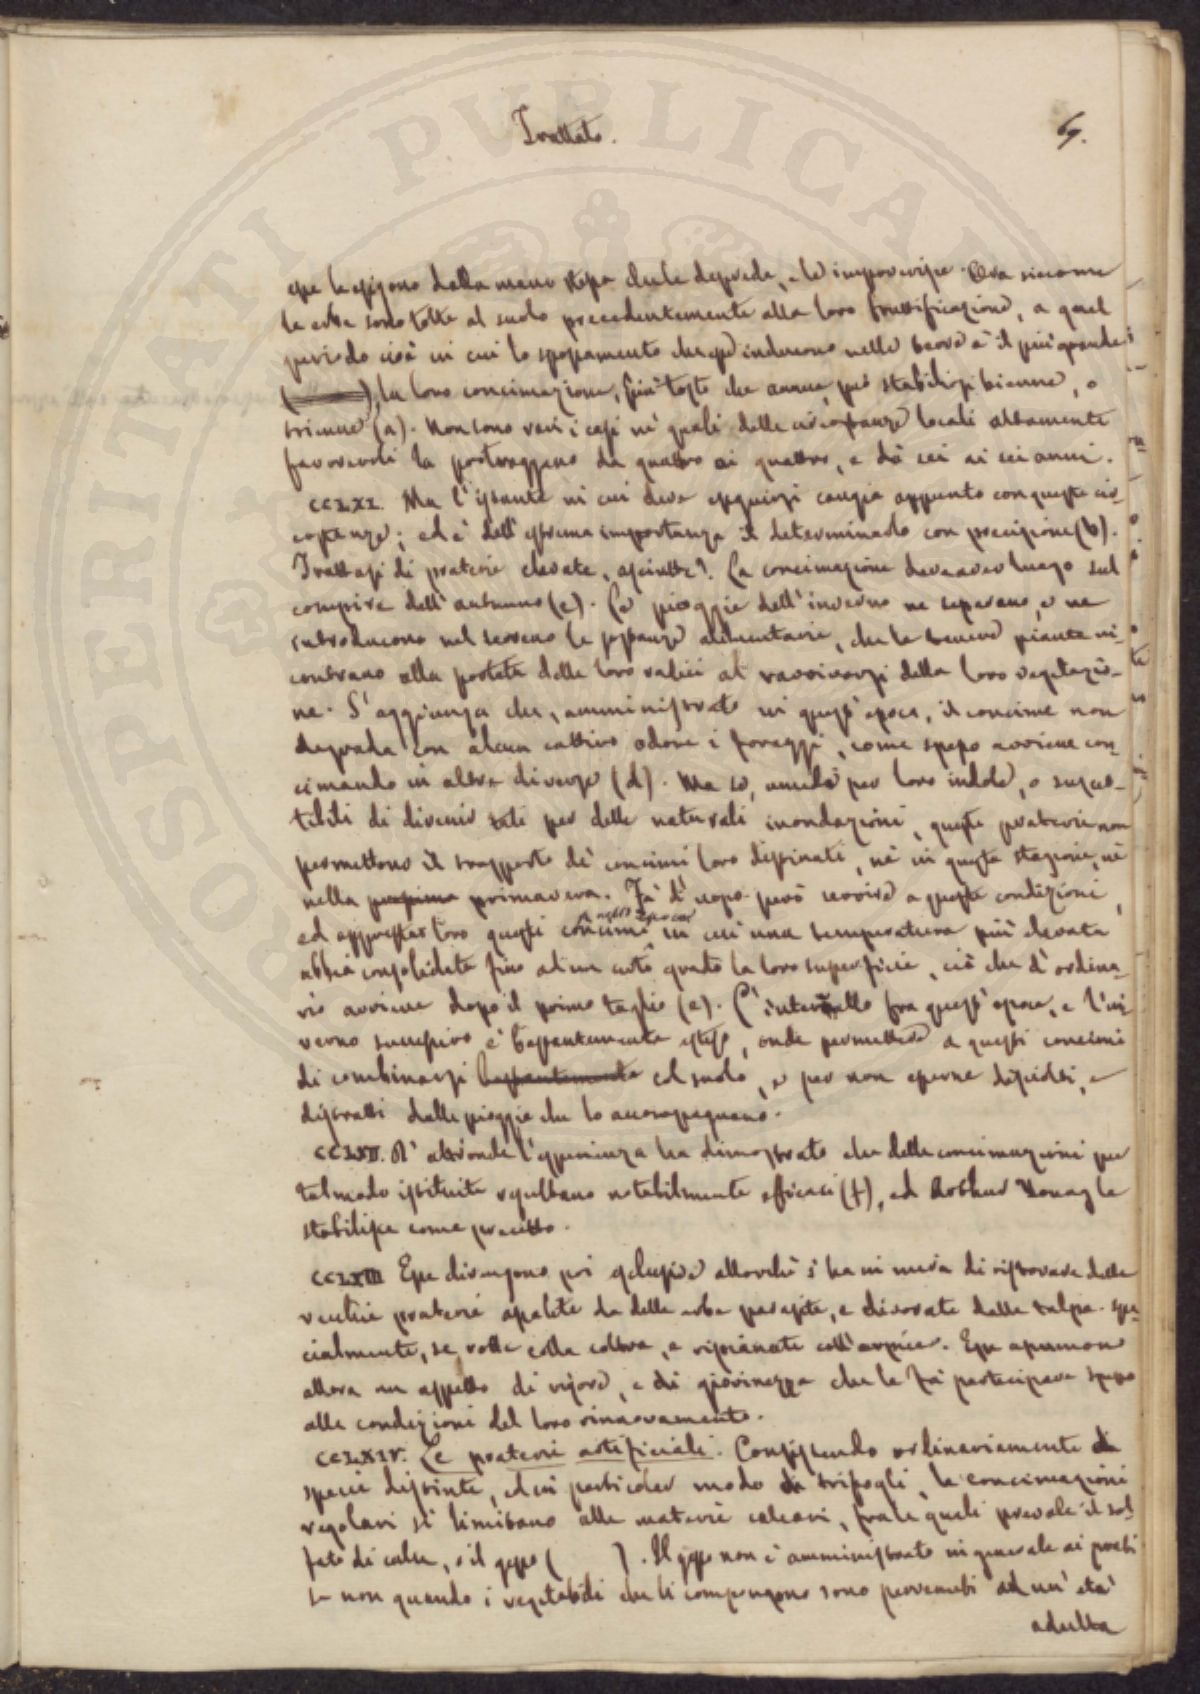 Trattato. 69.
esse la esigono dalla mano stessa che le depreda, e le impoverisce. Ora siccome
le erbe sono tolte al suolo precedentemente alla loro fruttificazione, a quel
periodo cioè in cui lo spossamento che esse inducono nelle terre è il più grande
la loro concimazione, più tosto che annua, può stabilirsi bienne, o
trienne (a). Non sono rari i casi ne' quali delle circostanze locali altamente
favorevoli la protraggono da quattro ai quattro, e da sei ai sei anni.
CCLXI. Ma l'istante in cui deve eseguirsi cangia appunto con queste cir-
costanze; ed è dell'estrema importanza il determinarlo con precisione (b).
Trattasi di praterie elevate, asciutte? La concimazione deve aver luogo sul
compire dell'autunno (c). Le pioggie dell'inverno ne separano, e ne
introducono nel terreno le sostanze alimentarie, che le tenere piante in-
contrano alla portata delle loro radici al ravvivarsi della loro vegetazio-
ne. S'aggiunga che, amministrato in quest'epoca, il concime non
degrada con alcun cattivo odore i foraggi, come spesso avviene con-
cimando in altre diverse (d). Ma se, umide per loro indole, o suscet-
tibili di divenir tali per delle naturali inondazioni, queste praterie non
permettono il trasporto de' concimi loro destinati, nè in questa stagione, nè
nella primavera. Fa d'uopo però servire a queste condizioni,
ed apprestar loro questi concimi in cui una temperatura più elevata
abbia consolidata fino ad un certo grado la loro superficie, ciò che d'ordina-
rio avviene dopo il primo taglio (e). L'intervallo fra quest'epoca, e l'in-
verno successivo è bastantemente esteso, onde permettere a questi concimi
di combinarsi bastantemente col suolo, e per non esserne disciolti, e
distratti dalle pioggie che lo accompagnano.
CCLXII. D'altronde l'esperienza ha dimostrato che delle concimazioni per
tal modo istituite risultano notabilmente efficaci (f), ed Arthur Young le
stabilisce come precetto.
CCLXIII Esse divengono poi allorchè s'ha in mira di ristorare delle
vecchie praterie assalite da delle erbe parassite, e divorate dalle talpe. Spe-
cialmente, se rotte colla coltra, e rispianate coll'erpice. Esse assumono
allora un aspetto di vigore, e di giovinezza che le fa partecipare spesso
alle condizioni del loro rinnovamento.
CCLXIV. Le praterie artificiali. Consistendo ordinariamente di
specie distinte, ed in particolar modo di trifogli, le concimazioni
regolari si limitano alle materie calcari, fra le quali prevale il sol-
fato di calce, o il gesso ( ). Il gesso non è amministrato in generale ai prati
se non quando i vegetabili che li compongono sono pervenuti ad un'età
adulta